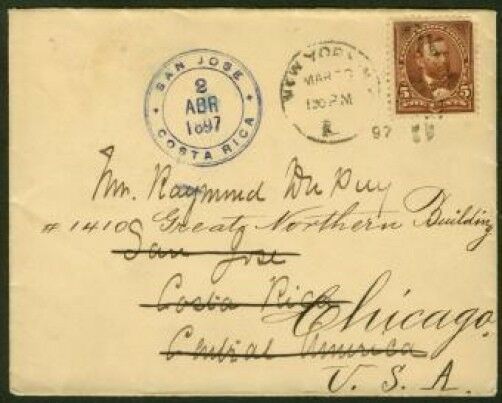 SAN JOSE
2
ABR
1897
COSTA RICA
NEW YORK
MAR
1 30 P.M
97
5 5
Mr. Raymond Du Puy
# 1410 Great Northern Building
San Jose
Costa Rica
Chicago
Central America
U. S. A.